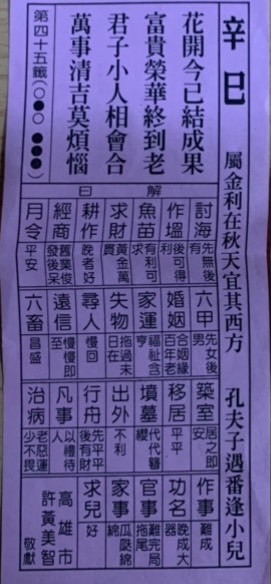 辛巳
屬金利在秋天宜其西方
孔夫子遇番逢小兒
花開今已結成果
富貴榮華終到老
君子小人相會合
萬事清吉莫煩惱
第四十五籤(○●○ ●●●)
解曰
討海 先無後有
作塭 後可得利
魚苗 有利可
求財 黃金萬貫
耕作 晚者好
經商 舊業俊發後呆
月令 平安
六甲 先女後男
婚姻 合姻緣百年老
家運 福祉含亨
失物 拖過未日在
尋人 慢回
遠信 慢慢即至
六畜 昌盛
築室 居之即安
移居 平平
墳墓 代代簪纓
出外 不利
行舟 先平平後有財
凡事 以禮待人
治病 老惡運少不畏
作事 難成
功名 晚成大器
官事 難完局拖尾
家事 瓜瓞綿綿
求兒 好
高雄市
許黃美智
敬獻